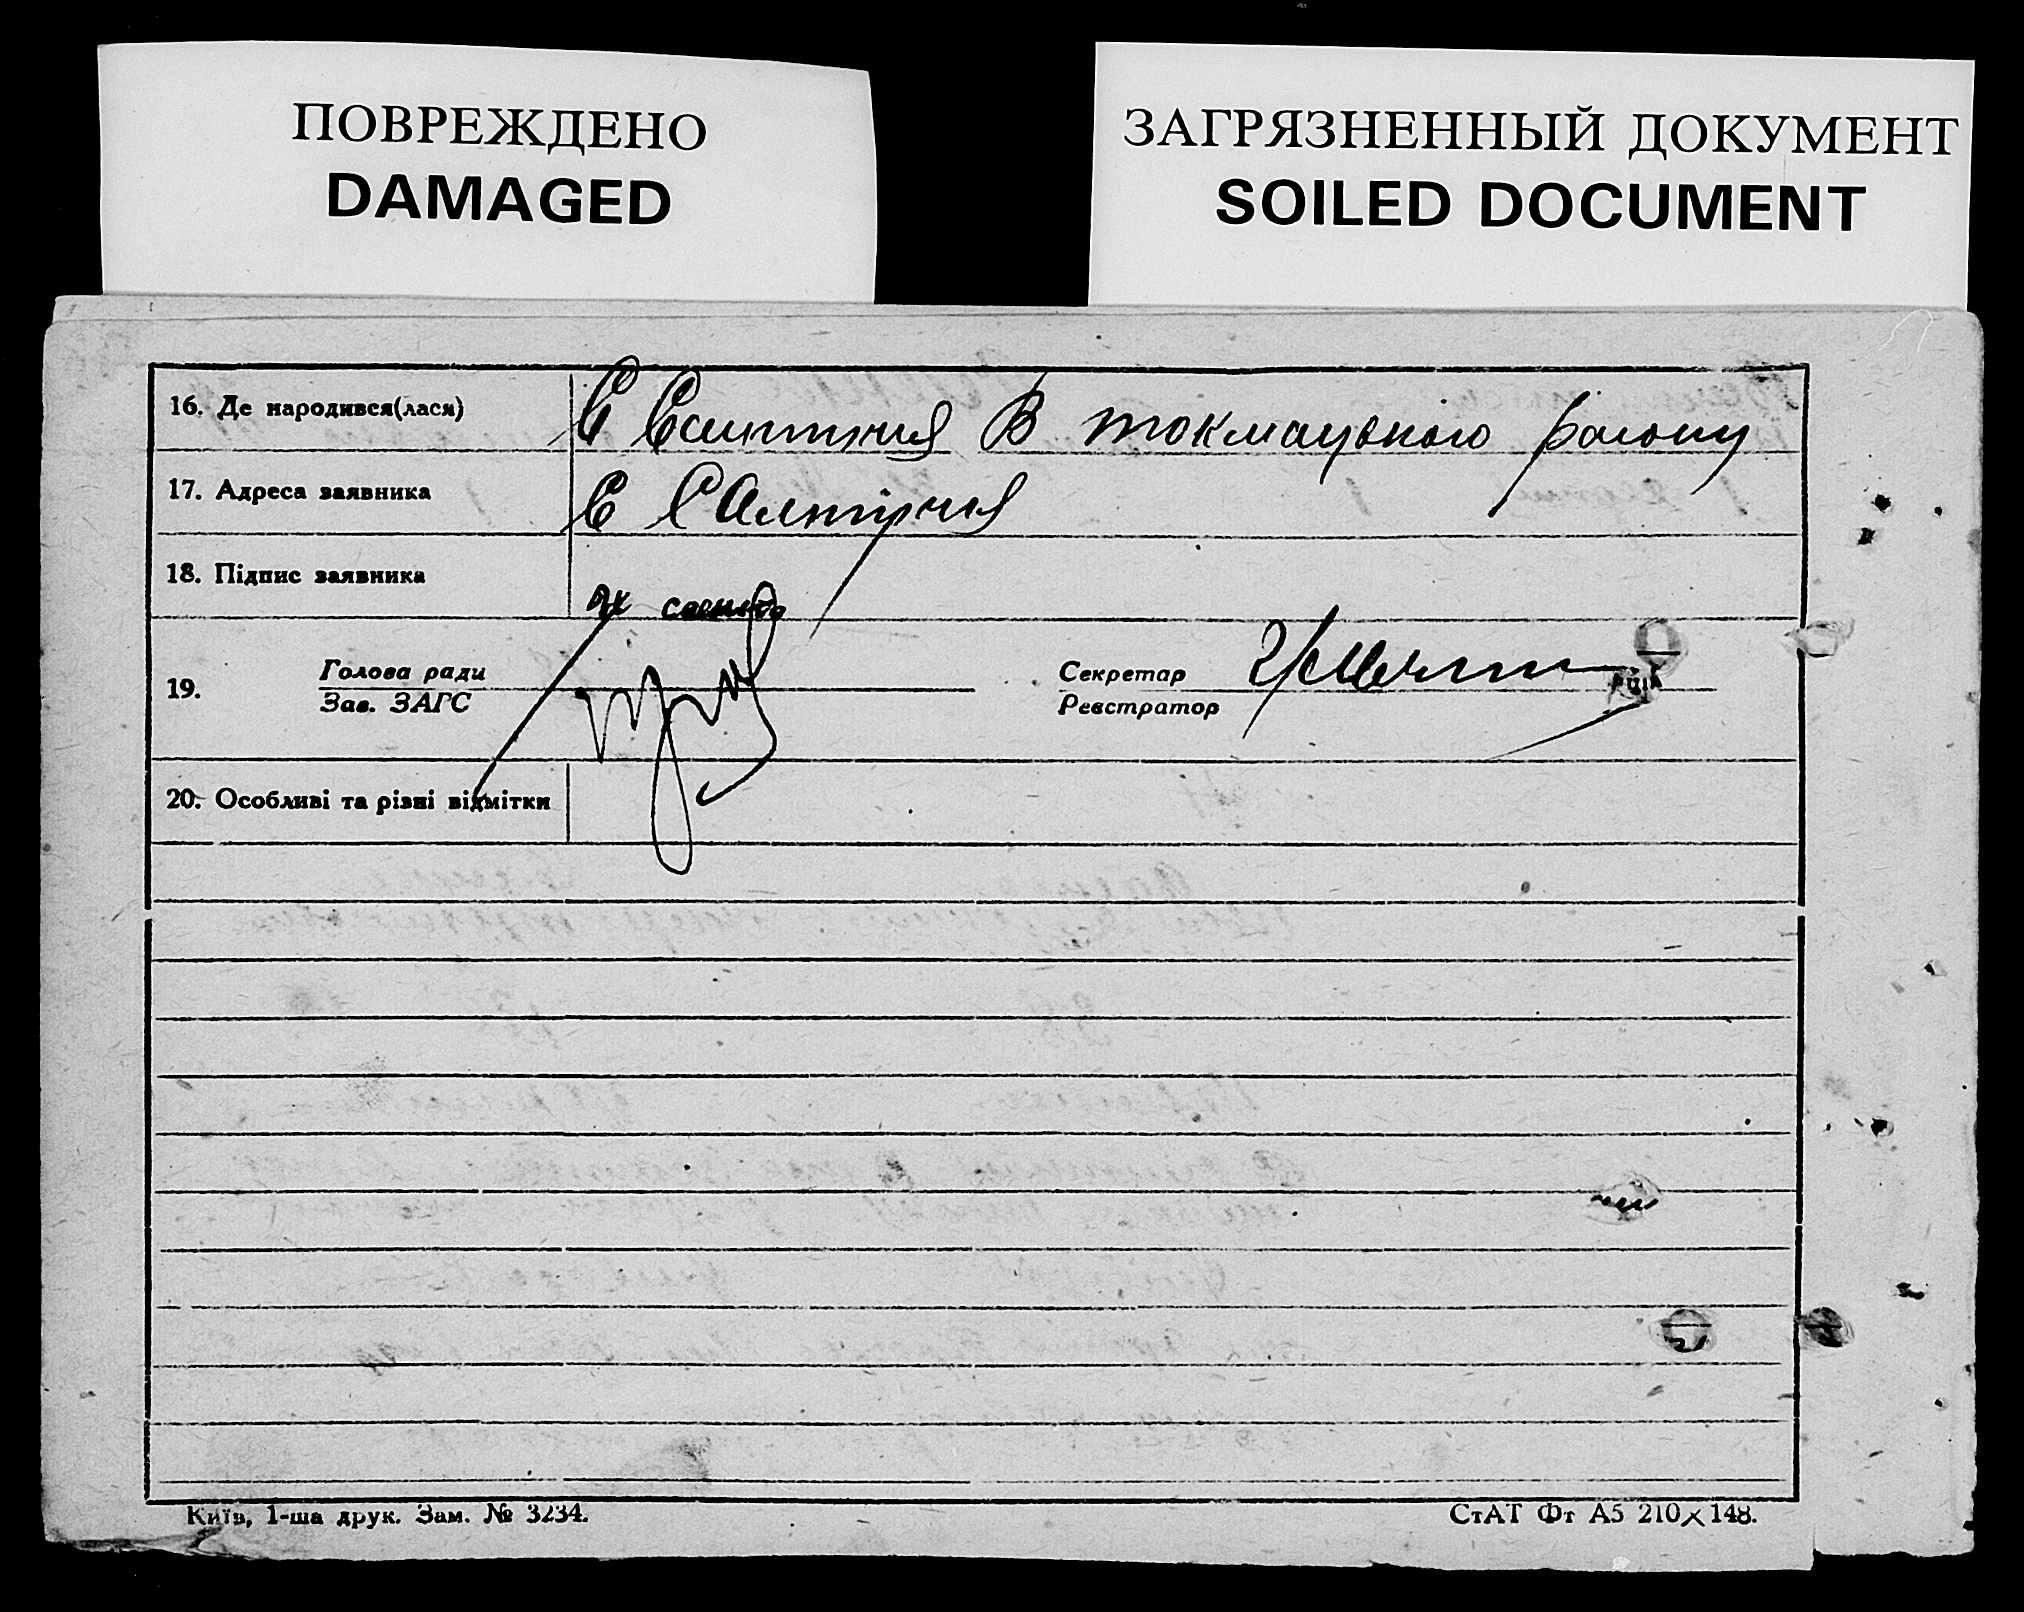 ПОВРЕЖДЕНО
DAMAGED
ЗАГРЯЗНЕННЫЙ ДОКУМЕНТ
SOILED DOCUMENT
16. Де народився(лася) С В токмацького району
17. Адреса заявника С
18. Підпис заявника
19. Голова ради
Зав. ЗАГС
Секретар
Реєстратор
20. Особливі та різні відмітки
Київ, 1-ша друк. Зам. № 3234.
СтАТ Фт А5 210×148.